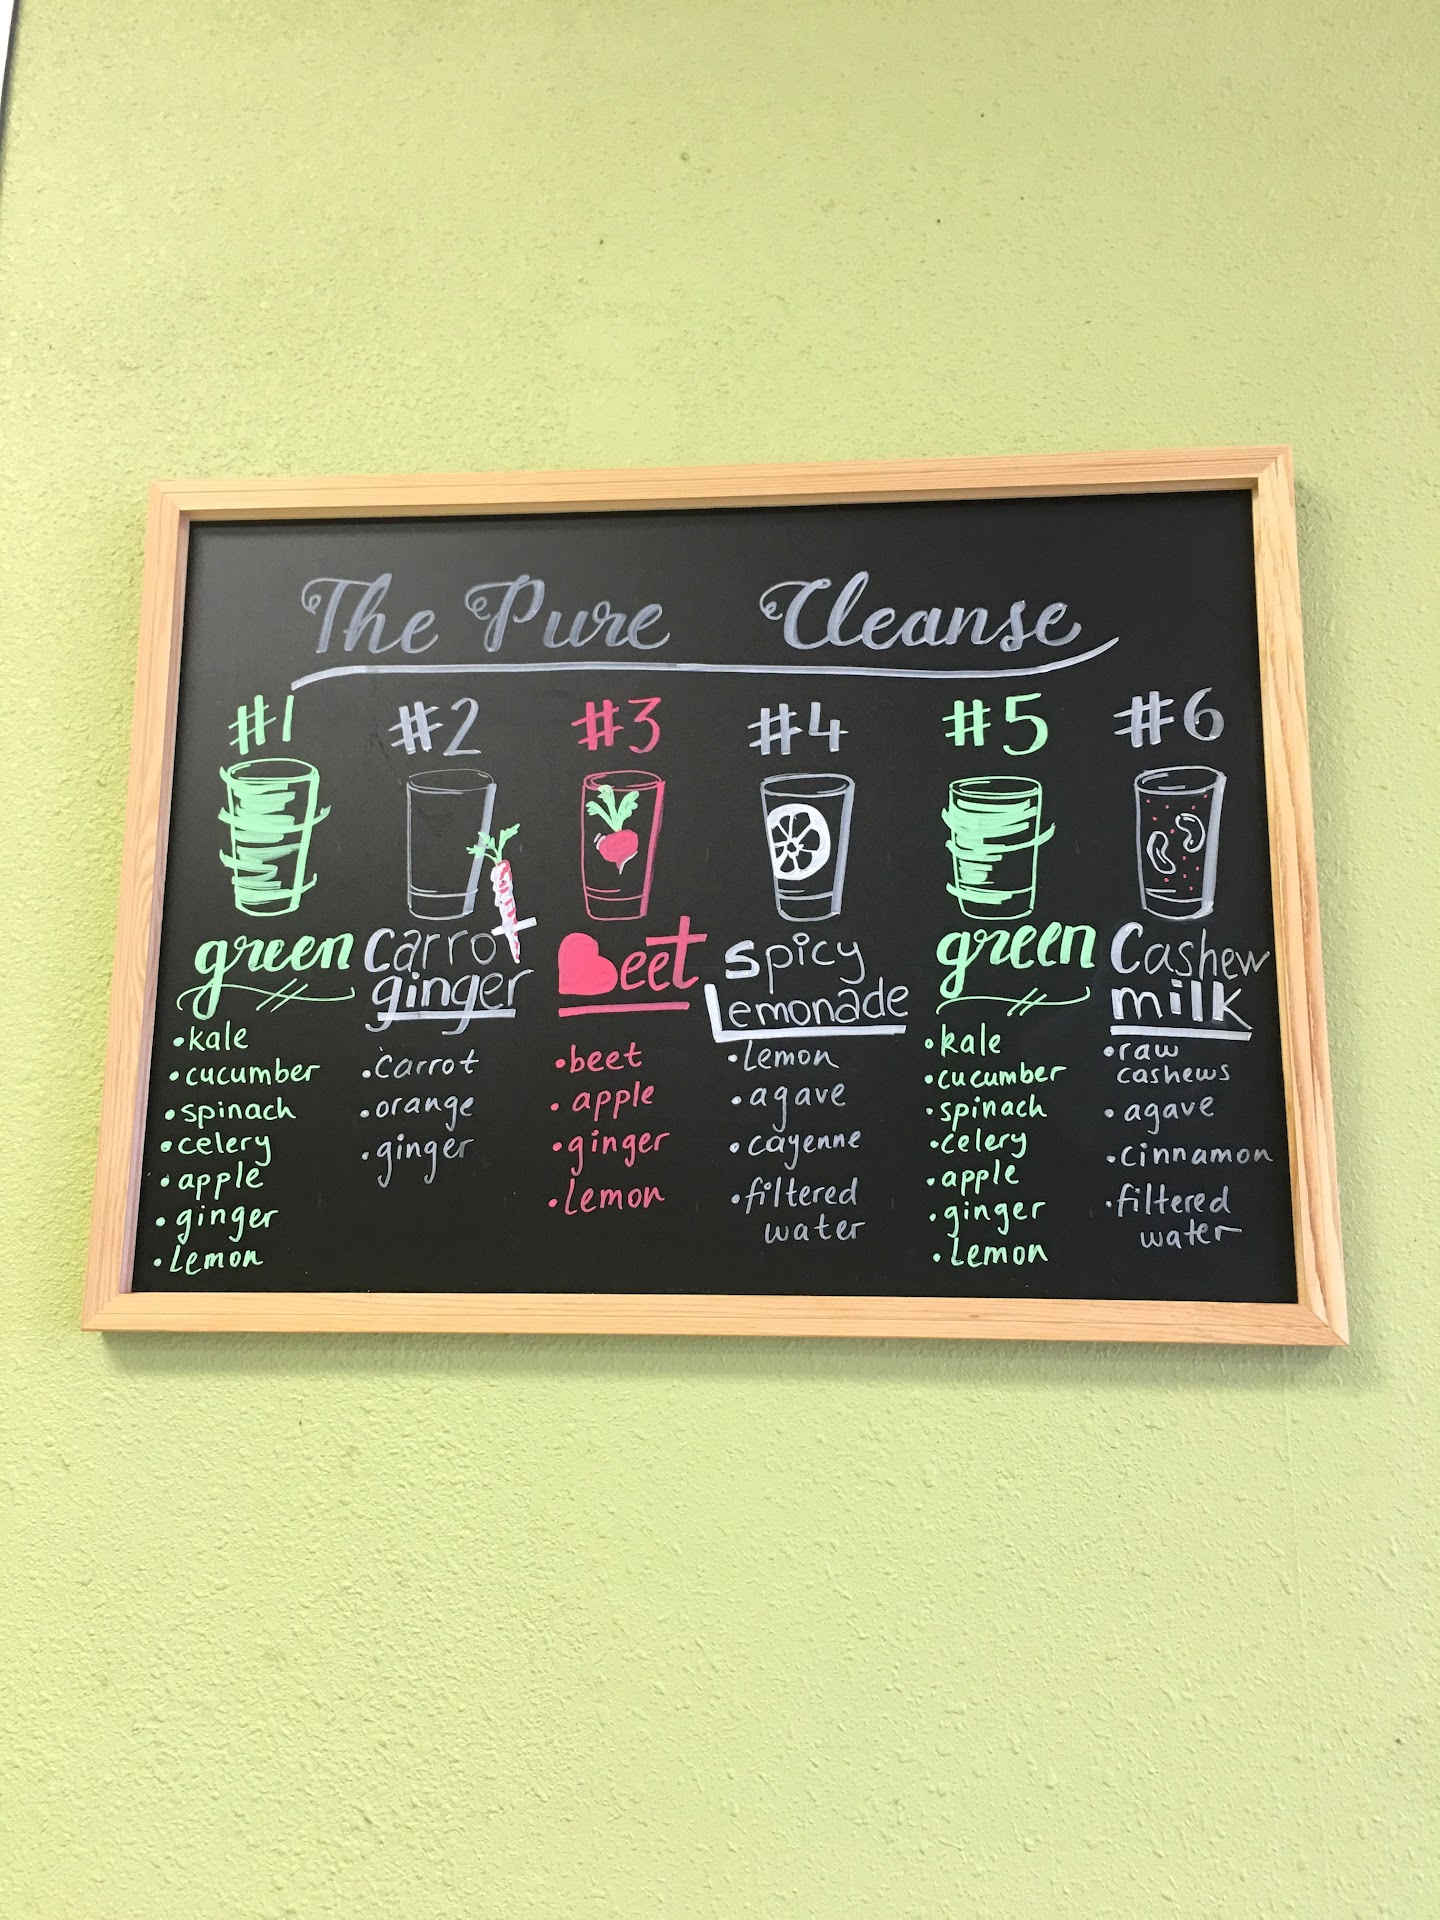 The Pure Cleanse
#1
green
• kale
• cucumber
• spinach
• celery
• apple
• ginger
• Lemon
#2
Carrot
ginger
• carrot
• orange
• ginger
#3
Beet
• beet
• apple
• ginger
• Lemon
#4
Spicy
Lemonade
• Lemon
• agave
• cayenne
• filtered
water
#5
green
• kale
• cucumber
• spinach
• celery
• apple
• ginger
• Lemon
#6
Cashew
milk
• raw
cashews
• agave
• cinnamon
• filtered
water